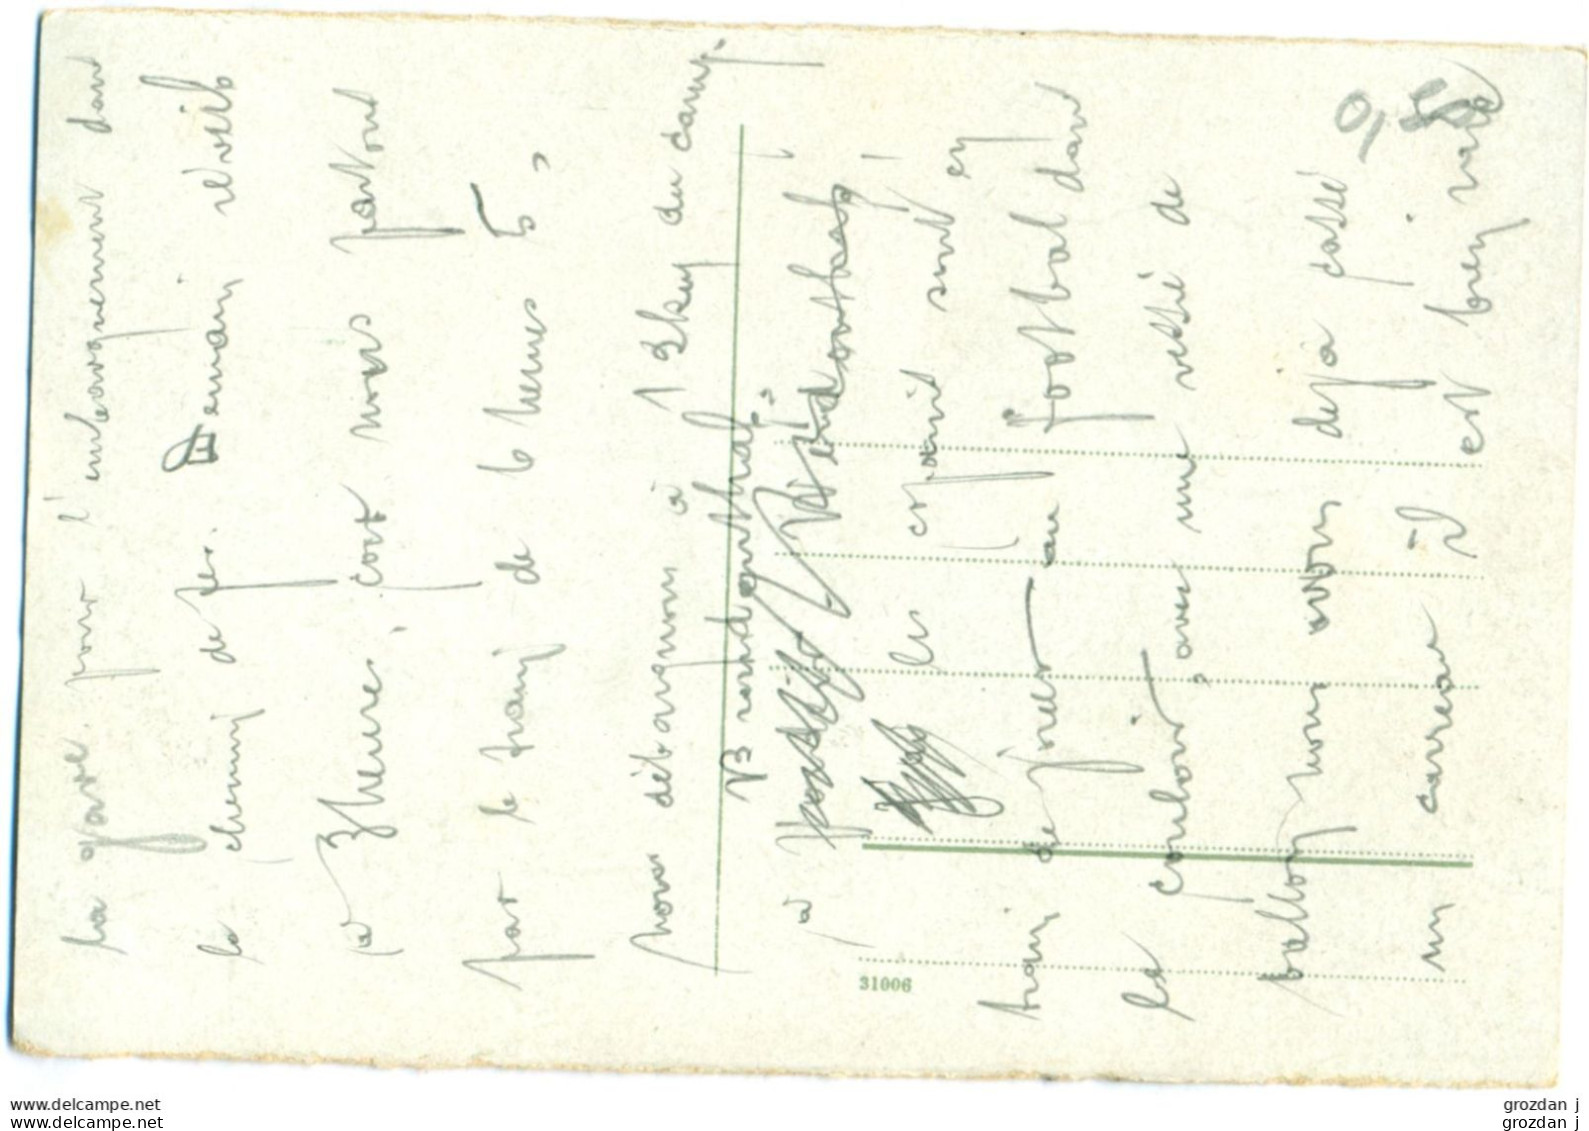 la gare pour l'embarquement dans
le chemin de fer. Demain réveil
à 3 heures, car nous partons
par le train de 6 heures 5,
nous débarquons à 12 km du camp.
à
les copains sont en
train de jouer au football dans
le couloir, avec une vessie de
ballon, nous avons déjà cassé
un carreau. Il est bien rare
31006
www.delcampe.net
www.delcampe.net
grozdan j
grozdan j